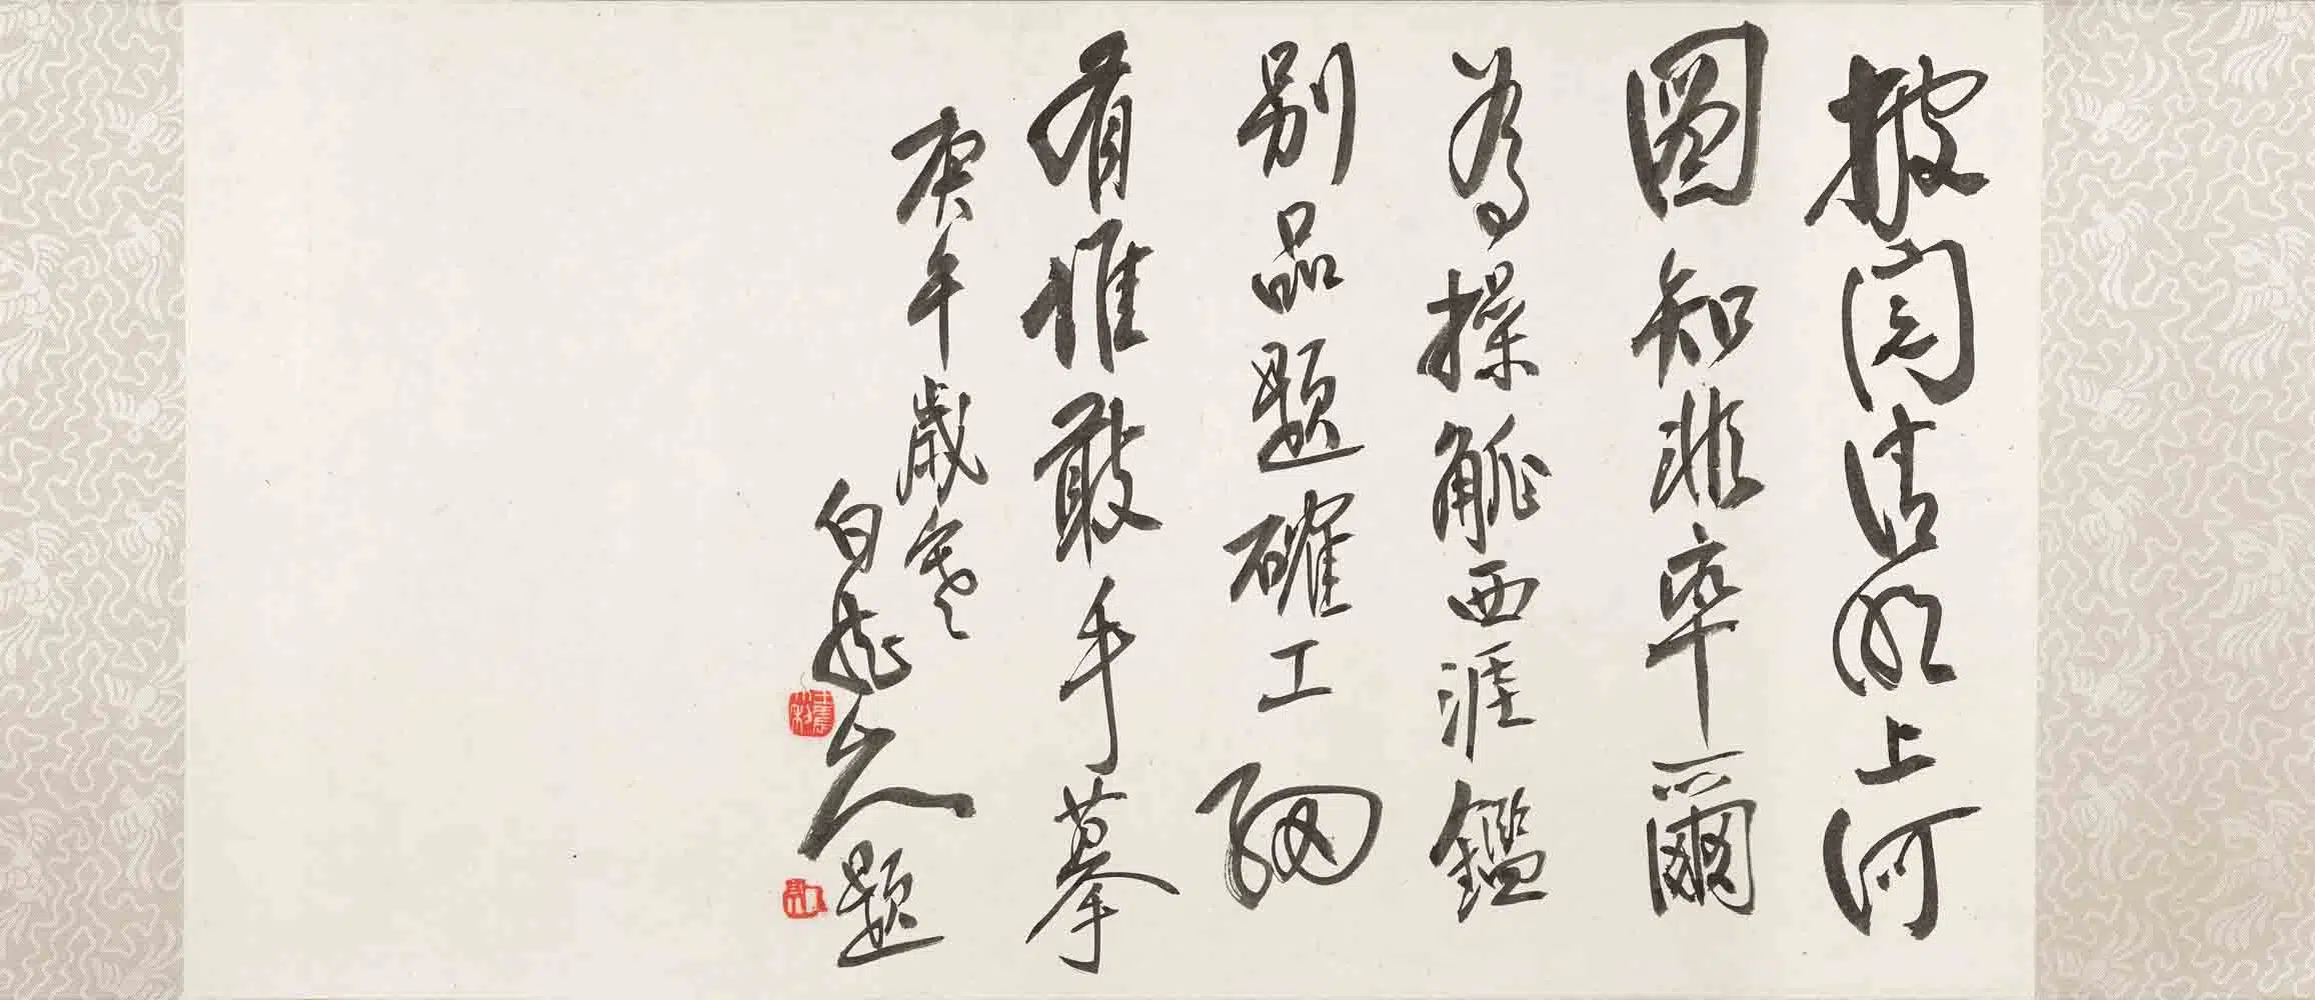 披閱清明上河
圖知非率爾
為操觚西涯鑑
別品題確工細
有誰敢手摹
庚午歲寒
白龍山人題